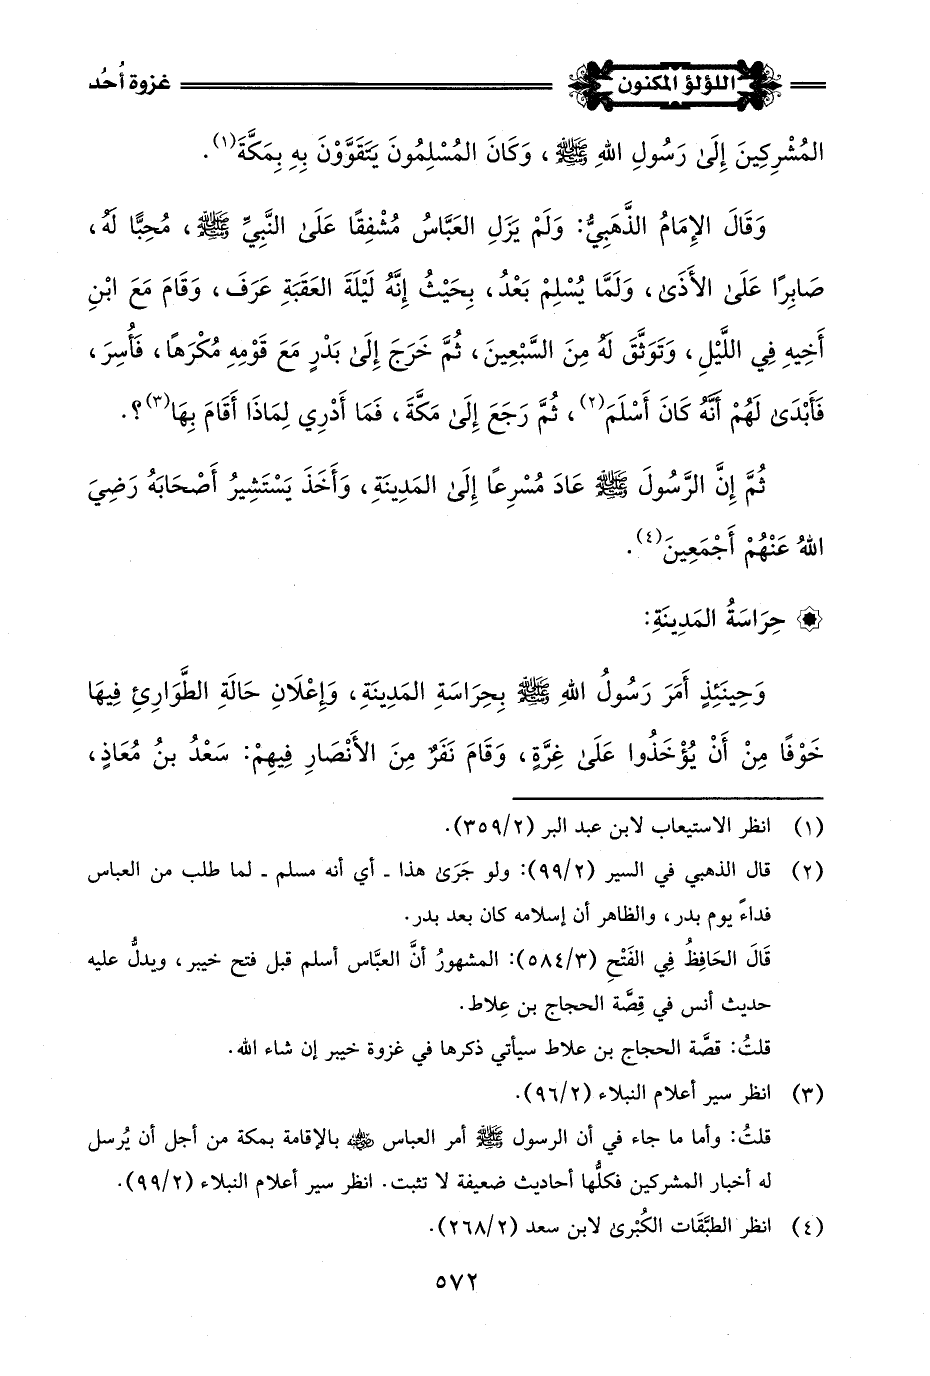 اللؤلؤ المكنون
غزوة أُحُد
المُشْرِكِينَ إِلَىٰ رَسُولِ اللهِ ﷺ، وَكَانَ المُسْلِمُونَ يَتَقَوَّوْنَ بِهِ بِمَكَّةَ(١).
وَقَالَ الإِمَامُ الذَّهَبِيُّ: وَلَمْ يَزَلِ العَبَّاسُ مُشْفِقًا عَلَىٰ النَّبِيِّ ﷺ، مُحِبًّا لَهُ،
صَابِرًا عَلَىٰ الأَذَىٰ، وَلَمَّا يُسْلِمْ بَعْدُ، بِحَيْثُ إِنَّهُ لَيْلَةَ العَقَبَةِ عَرَفَ، وَقَامَ مَعَ ابْنِ
أَخِيهِ فِي اللَّيْلِ، وَتَوَثَّقَ لَهُ مِنَ السَّبْعِينَ، ثُمَّ خَرَجَ إِلَىٰ بَدْرٍ مَعَ قَوْمِهِ مُكْرَهًا، فَأُسِرَ،
فَأَبْدَىٰ لَهُمْ أَنَّهُ كَانَ أَسْلَمَ(٢)، ثُمَّ رَجَعَ إِلَىٰ مَكَّةَ، فَمَا أَدْرِي لِمَاذَا أَقَامَ بِهَا(٣)؟.
ثُمَّ إِنَّ الرَّسُولَ ﷺ عَادَ مُسْرِعًا إِلَىٰ المَدِينَةِ، وَأَخَذَ يَسْتَشِيرُ أَصْحَابَهُ رَضِيَ
اللهُ عَنْهُمْ أَجْمَعِينَ(٤).
۞ حِرَاسَةُ المَدِينَةِ:
وَحِينَئِذٍ أَمَرَ رَسُولُ اللهِ ﷺ بِحِرَاسَةِ المَدِينَةِ، وَإِعْلَانِ حَالَةِ الطَّوَارِئِ فِيهَا
خَوْفًا مِنْ أَنْ يُؤْخَذُوا عَلَىٰ غِرَّةٍ، وَقَامَ نَفَرٌ مِنَ الأَنْصَارِ فِيهِمْ: سَعْدُ بنُ مُعَاذٍ،
(١) انظر الاستيعاب لابن عبد البر (٣٥٩/٢).
(٢) قال الذهبي في السير (٩٩/٢): ولو جَرَىٰ هذا ـ أي أنه مسلم ـ لما طلب من العباس
فداءً يوم بدر، والظاهر أن إسلامه كان بعد بدر.
قَالَ الحَافِظُ فِي الفَتْحِ (٥٨٤/٣): المشهورُ أنَّ العبَّاس أسلم قبل فتح خيبر، ويدلُّ عليه
حديث أنس في قِصَّة الحجاج بن عِلاط.
قلتُ: قصَّة الحجاج بن علاط سيأتي ذكرها في غزوة خيبر إن شاء الله.
(٣) انظر سير أعلام النبلاء (٩٦/٢).
قلتُ: وأما ما جاء في أن الرسول ﷺ أمر العباس رضي الله عنه بالإقامة بمكة من أجل أن يُرسل
له أخبار المشركين فكلُّها أحاديث ضعيفة لا تثبت. انظر سير أعلام النبلاء (٩٩/٢).
(٤) انظر الطبَّقَات الكُبْرىٰ لابن سعد (٢٦٨/٢).
٥٧٢